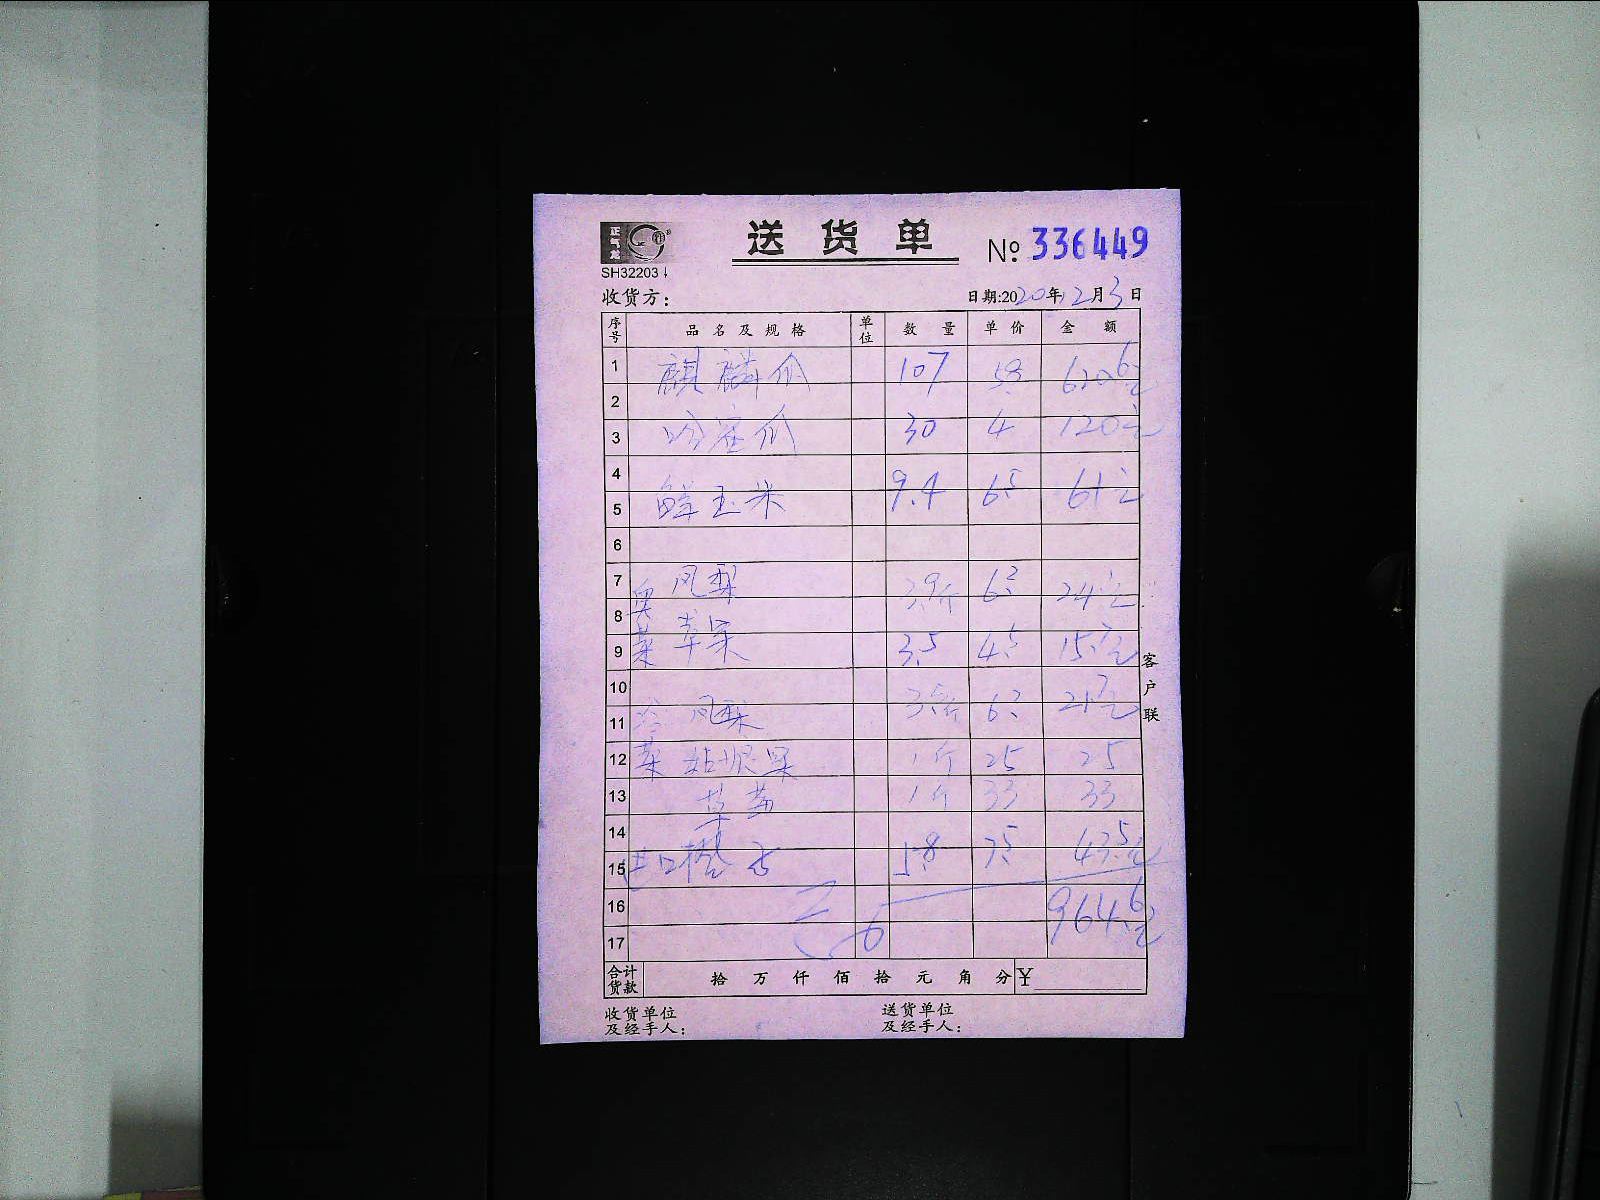 正气龙
SH32203
送货单
№ 336449
收货方：
日期:2020年12月3日
序号 品名及规格 单位 数量 单价 金额
1 麒麟瓜 107 5.8 620.6元
2
3 哈蜜瓜 30 4 120元
4
5 鲜玉米 9.4 6.5 61元
6
7 风梨 3.9斤 6.2 24.1元
8 奥
9 菜 苹果 3.5 4.5 15.7元
10
11 冷 风梨 3.5斤 6.2 21.7元
12 菜 1斤 25 25
13 草莓 1斤 33 33
14
15 进口橙 5.8 7.5 43.5元
16 964.6元
17
合计货款 拾 万 仟 佰 拾 元 角 分 ¥
收货单位及经手人：
送货单位及经手人：
客户联